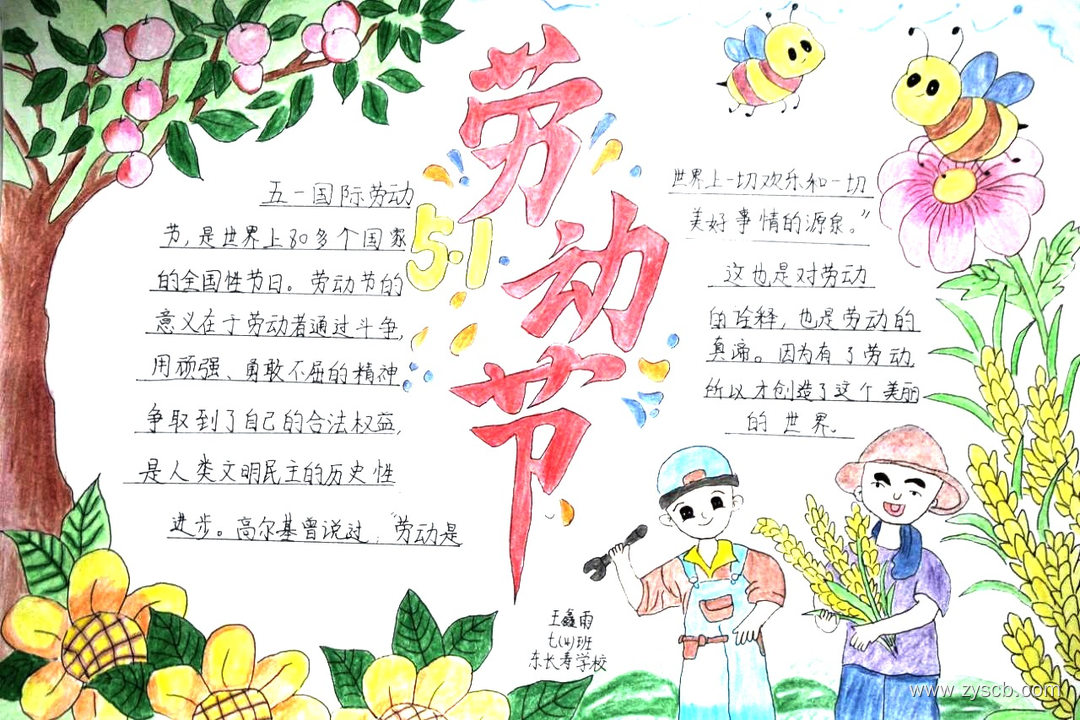 劳动节
5·1
五一国际劳动
节,是世界上80多个国家
的全国性节日。劳动节的
意义在于劳动者通过斗争,
用顽强、勇敢不屈的精神
争取到了自己的合法权益,
是人类文明民主的历史性
进步。高尔基曾说过:“劳动是
世界上一切欢乐和一切
美好事情的源泉。”
这也是对劳动
的诠释,也是劳动的
真谛。因为有了劳动,
所以才创造了这个美丽
的世界.
王鑫雨
七(4)班
东长寿学校
www.zyscb.com